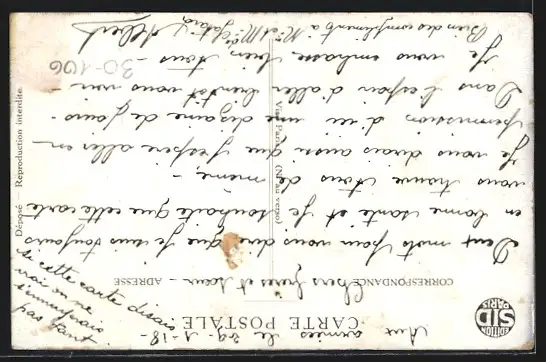 Aux armées le 29-1-18-
CARTE POSTALE
EDITION
SID
PARIS
CORRESPONDANCE
ADRESSE
Chers frères et sœur -
Deux mots pour vous dire que je suis toujours
en bonne santé et je souhaite que cette carte
vous trouve tous de même -
Je vous dirais aussi que j'espère aller en
permission d'ici une dizaine de jours -
Dans l'espoir d'aller bientôt vous voir -
Je vous embrasse bien tous -
Albert
Bien des compliments à Mr et Mme
si cette carte
vrai on ne
pas tant
30-106
Visé Paris (No au verso)
Déposé - Reproduction interdite.